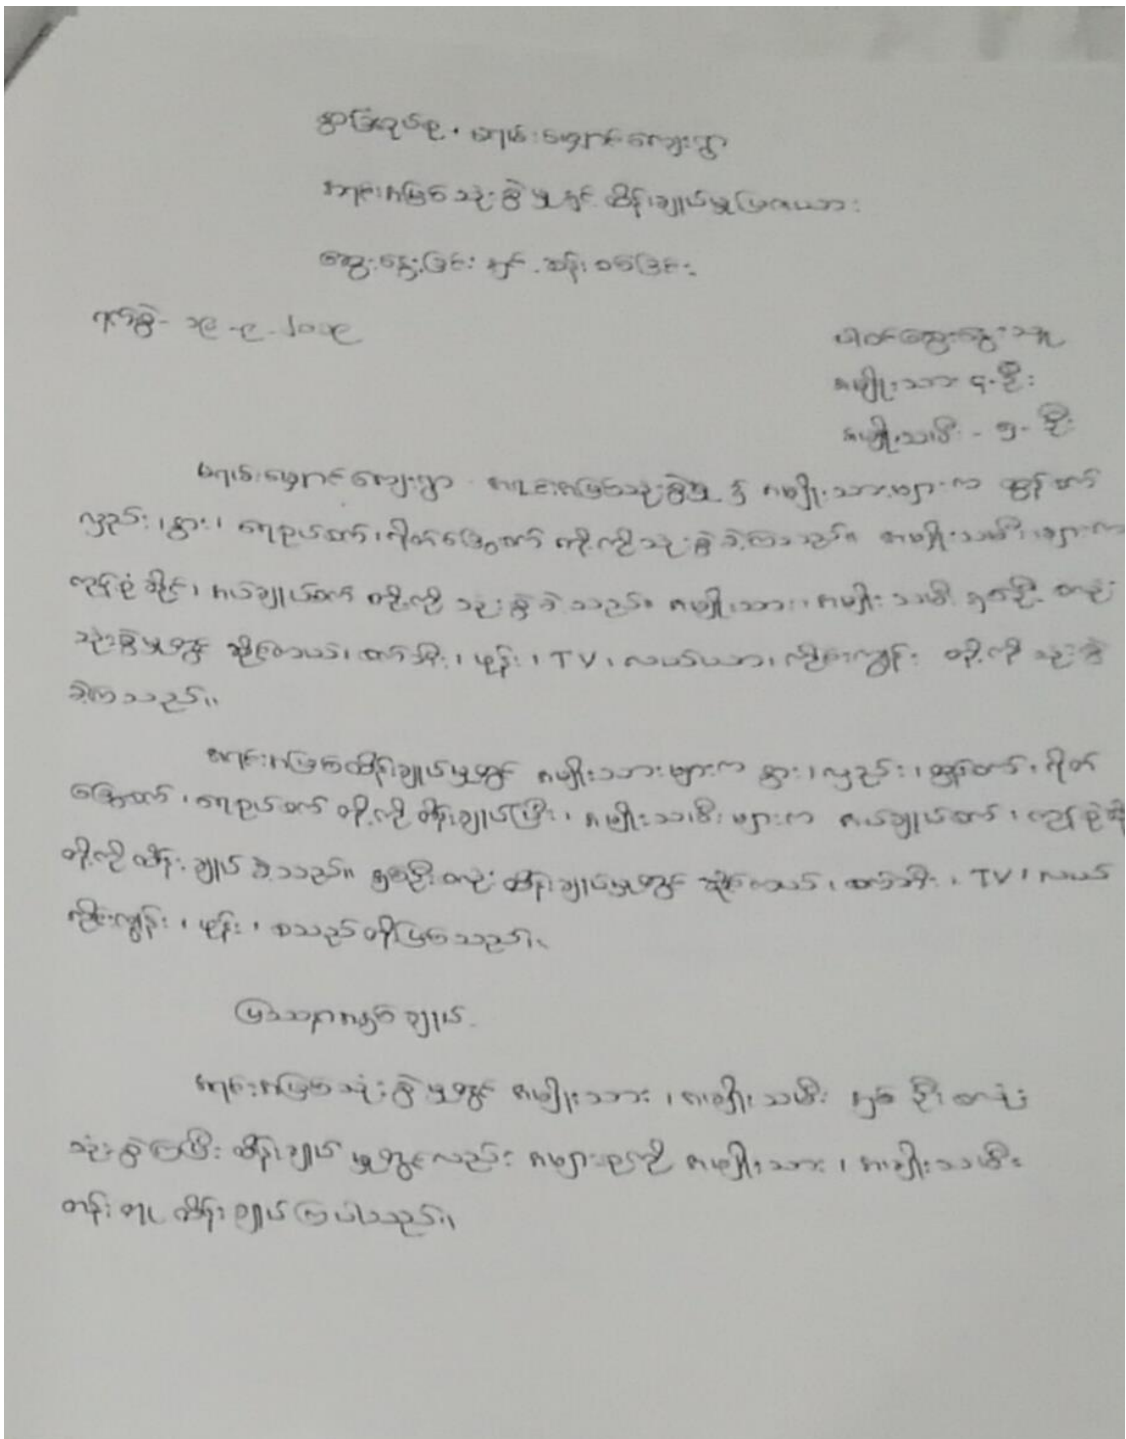 ရွာဖြူအုပ်စု၊ မရမ်းချောင်ကျေးရွာ
အရင်းအမြစ်သုံးစွဲမှုနှင့် ထိန်းချုပ်မှုပြဇယား
ဆွေးနွေးခြင်း နှင့် ဆန်းစစ်ခြင်း
ရက်စွဲ- ၁၉-၉-၂၀၁၃
ပါဝင်ဆွေးနွေးသူ
အမျိုးသား ၄-ဦး
အမျိုးသမီး - ၅- ဦး
ကျေးရွာ အရင်းအမြစ်သုံးစွဲမှု၌ အမျိုးသားများက ထွန်စက်
လှည်း၊ နွား၊ ရေစုပ်စက်၊ ရိတ်ခြွေစက် တို့ကို သုံးစွဲခဲ့ကြသည်။ အမျိုးသမီးများက
ကုန်စုံဆိုင်၊ အပ်ချုပ်စက် တို့ကို သုံးစွဲခဲ့သည်။ အမျိုးသား၊ အမျိုးသမီး နှစ်ဦးစလုံး
သုံးစွဲမှုတွင် ဆိုင်ကယ်၊ စက်ဘီး၊ ဖုန်း၊ TV၊ လယ်ယာ၊ ကိုင်းကျွန်း တို့ကို သုံးစွဲ
ခဲ့ကြသည်။
အရင်းအမြစ်ထိန်းချုပ်မှုတွင် အမျိုးသားများက နွား၊ လှည်း၊ ထွန်စက်၊ ရိတ်
ခြွေစက်၊ ရေစုပ်စက် တို့ကို ထိန်းချုပ်ပြီး၊ အမျိုးသမီးများက အပ်ချုပ်စက်၊ ကုန်စုံဆို
တို့ကို ထိန်းချုပ်ခဲ့သည်။ နှစ်ဦးစလုံး ထိန်းချုပ်မှုတွင် ဆိုင်ကယ်၊ စက်ဘီး၊ TV၊ လယ်
ကိုင်းကျွန်း၊ ဖုန်း၊ စသည်တို့ဖြစ်သည်။
ပြဿနာအနှစ်ချုပ်
အရင်းအမြစ်သုံးစွဲမှုတွင် အမျိုးသား၊ အမျိုးသမီး နှစ်ဦးစလုံး
သုံးစွဲကြပြီး ထိန်းချုပ်မှုတွင်လည်း အများစုကို အမျိုးသား၊ အမျိုးသမီး
တန်းတူ ထိန်းချုပ်ကြပါသည်။